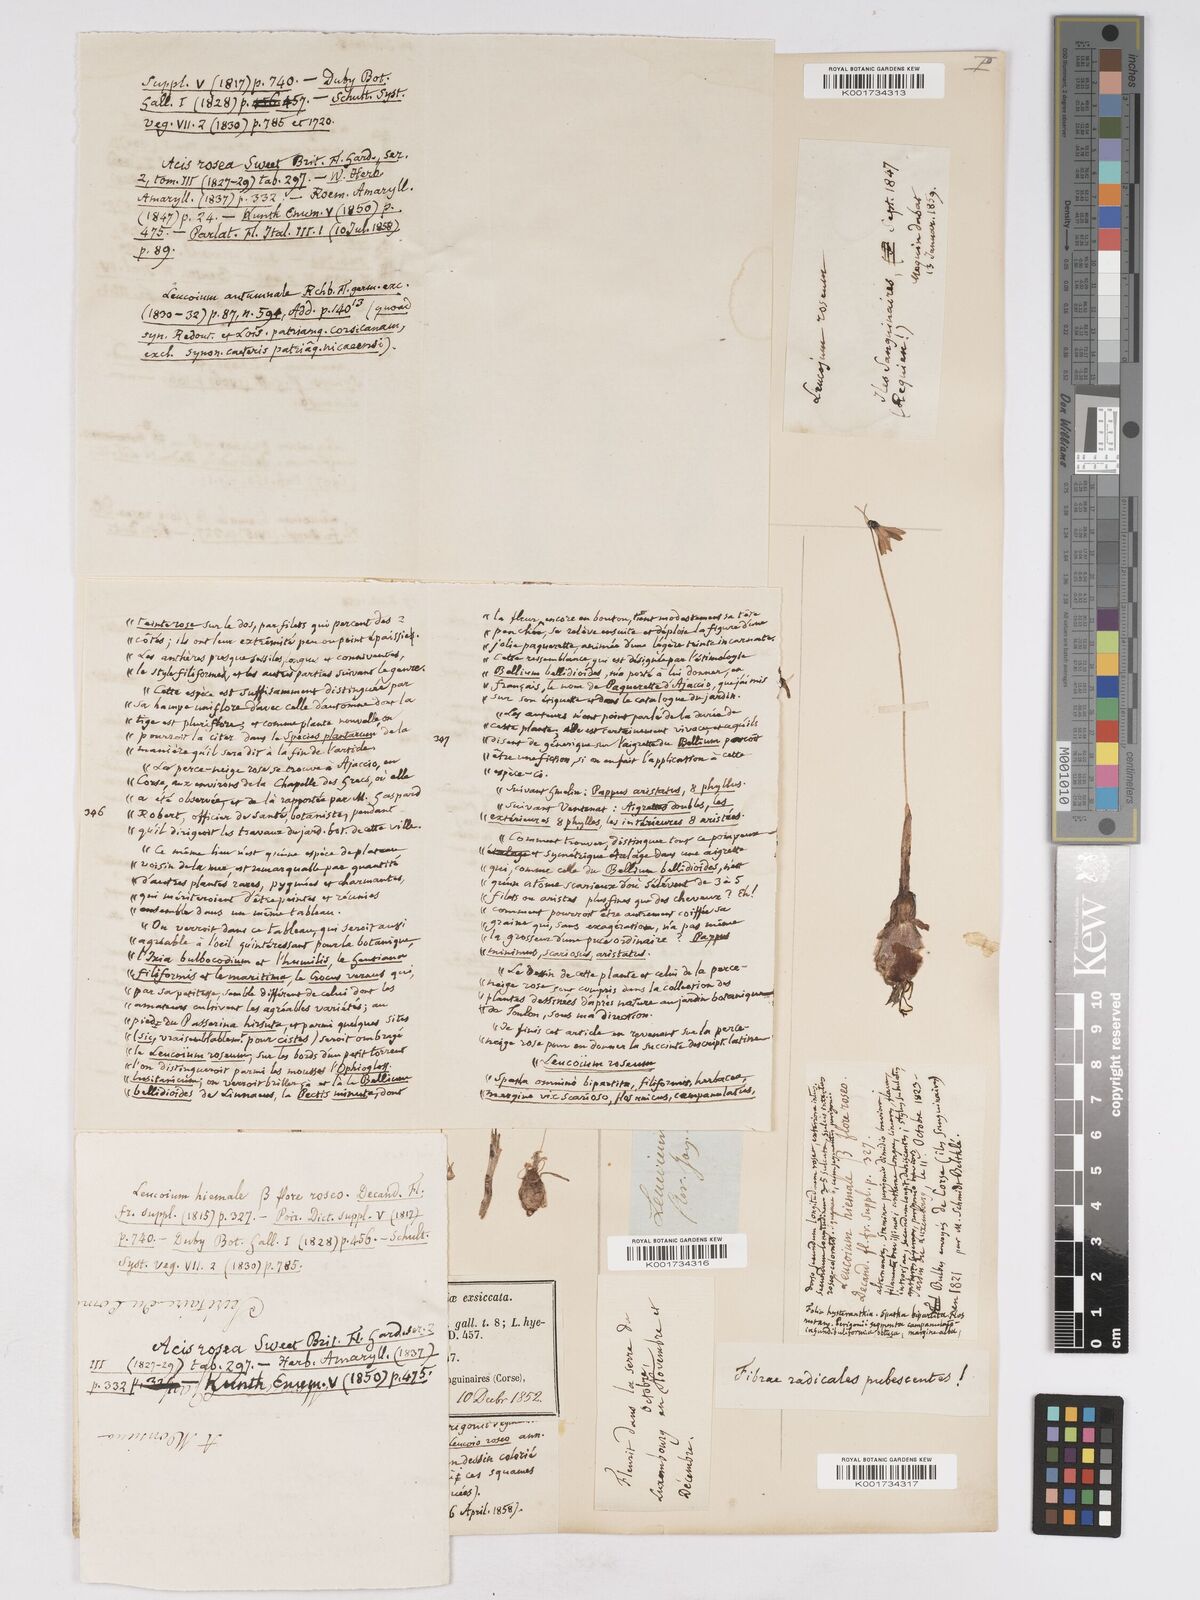 Suppl. V (1817) p. 740. — Duby Bot.
Gall. I (1828) p. 457. — Schult. Syst.
veg. VII. 2 (1830) p. 785 et 1720.
Acis rosea Sweet Brit. Fl. Gard., ser.
2, tom. III (1827-29) tab. 297. — W. Herb
Amaryll. (1837) p. 332. — Roem. Amaryll.
(1847) p. 24. — Kunth Enum. V (1850) p.
475. — Parlat. Fl. Ital. III. I (10 Jul. 1858)
p. 89.
Leucoium autumnale Rchb. Fl. germ. exc.
(1830-32) p. 87, n. 594, Add. p. 140¹³ (quoad
syn. Redout. et Lois. patriamq. corsicanam,
excl. synon. caeteris patriâq. nicaeensi).
ROYAL BOTANIC GARDENS KEW
K001734313
Leucojum roseum
Iles Sanguinaires, Sept. 1847
(Requien!)
Maquin dabat
13 Januar. 1859.
« teinte rose sur le dos, par filets qui percent des 2
« côtés; ils ont leur extrémité peu ou point épaissie.
« Les anthères presque sessiles, orgues et conniventes,
« le style filiformes, et les autres parties suivant le genre.
« Cette espèce est suffisamment distinguée par
« sa hampe uniflore d'avec celle d'automne dont la
« tige est pluriflore; et comme plante nouvelle on
« pourroit la citer dans le Species plantarum de la
« manière qu'il sera dit à la fin de l'article.
« La perce-neige rose se trouve à Ajaccio, en
« Corse, aux environs de la Chapelle des Grecs, où elle
« a été observée, et de là rapportée par M. Gaspard
346 « Robert, officier de santé, botaniste, pendant
« qu'il dirigeoit les travaux du jard. bot. de cette ville.
« Ce même lieu n'est qu'une espèce de plateau
« voisin de la mer, et remarquable par quantité
« d'autres plantes rares, pygmées et charmantes,
« qui mériteroient d'être peintes et réunies
« ensemble dans un même tableau.
« On verroit dans ce tableau, qui seroit aussi
« agréable à l'oeil qu'intéressant pour la botanique,
« l'Ixia bulbocodium et l'humilis, le Gentiana
« filiformis et le maritima, le Crocus vernus qui,
« par sa petitesse, semble différent de celui dont les
« amateurs cultivent les agréables variétés; au
« pied du Passerina hirsuta, et parmi quelques sites
« (sic, vraisemblablement pour cistes) seroit ombragé
« le Leucoïum roseum; sur les bords d'un petit torrent
« l'on distingueroit parmi les mousses l'Ophiogloss.
« lusitanicum; on verroit briller çà et là le Bellium
« bellidioïdes de Linnaeus, la Pectis minuta, dont
« la fleur, encore en bouton, tient modestement sa tête
« penchée, se relève ensuite et déploie la figure d'une
« jolie paquerette, animée d'une légère teinte incarnate.
« Cette ressemblance, qui est désignée par l'étimologie
« Bellium bellidioïdes, m'a porté à lui donner, en
« français, le nom de Paquerette d'Ajaccio, que j'ai mis
« sur son étiquette et dans le catalogue du jardin.
« Les auteurs n'ont point parlé de la durée de
« cette plante, elle est certainement vivace; et ce qu'ils
347 « disent de générique sur l'aigrette du Bellium paroît
« être une fiction, si on en fait l'application à cette
« espèce-ci.
« Suivant Gmelin: Pappus aristatus, 8 phyllus.
« Suivant Ventenat: Aigrettes doubles, les
« extérieures 8 phylles, les intérieures 8 aristées.
« Comment trouver, distinguer tout ce pompeux
« et symétrique étalage dans une aigrette
« qui, comme celle du Bellium bellidioïdes, n'est
« qu'un atôme scarieux d'où s'élèvent de 3 à 5
« filets ou aristes plus fines que des cheveux? Eh!
« comment pourroit être autrement coiffée sa
« graine qui, sans exagération, n'a pas même
« la grosseur d'une puce ordinaire? Pappus
« minimus, scariosus, aristatus.
« Le dessin de cette plante et celui de la perce-
« neige rose sont compris dans la collection des
« plantes dessinées d'après nature au jardin botanique
« de Toulon, sous ma direction.
« Je finis cet article en revenant sur la perce-
« neige rose pour en donner la succincte descript. latine
« Leucoïum roseum
« Spatha omnino bipartita, filiformis, herbacea,
« margine vix scarioso, flos unicus, campanulatus,
Leucoium hiemale β flore roseo. Decand. Fl.
fr. suppl. (1815) p. 327. — Poir. Dict. suppl. V (1817)
p. 740. — Duby Bot. Gall. I (1828) p. 456. — Schult.
Syst. veg. VII. 2 (1830) p. 785.
Acis rosea Sweet Brit. Fl. Gard. ser. 2
III (1827-29) tab. 297. — Herb. Amaryll. (1837)
p. 332 — Kunth Enum. V (1850) p. 475.
æ exsiccata.
gall. t. 8; L. hye-
D. 457.
7.
nguinaires (Corse),
10 Decbr 1852.
Leucoio roseo ann.
n dessin colorié
ces squames
6 April. 1858).
Leucoium
ROYAL BOTANIC GARDENS KEW
K001734316
Fleurit dans la serre du
Luxembourg en Octobre, Novembre et
Décembre.
Leucoium hiemale β flore roseo.
Decand. fl. fr. suppl. p. 327.
Jardin du Luxembourg, le 11 Octobre 1823.
Bulbes envoyés de Corse (iles Sanguinaires)
en 1821 par M.
Folia hysteranthia. Spatha bipartita. Flos
nutans. Perigonii segmenta campanulato-
infundibuliformia obtusa, margine alba,
Fibrae radicales pubescentes!
ROYAL BOTANIC GARDENS KEW
K001734317
inches
Don Williams
M001010
centimetres
Kew
0 1 2 3 4 5 6 7 8 9 10
cm